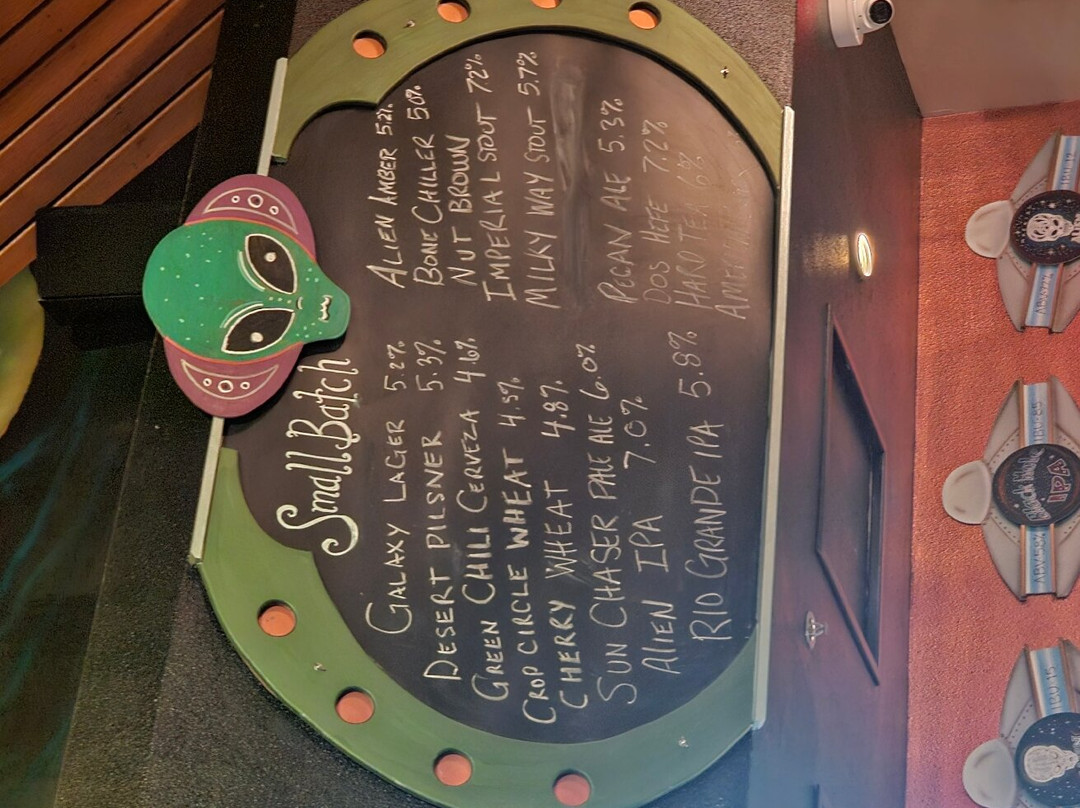 Small Batch
GALAXY LAGER 5.2%
DESERT PILSNER 5.3%
GREEN CHILI CERVEZA 4.6%
CROP CIRCLE WHEAT
CHERRY WHEAT 4.8%
SUN CHASER PALE ALE 6.0%
ALIEN IPA 7.0%
RIO GRANDE IPA 5.8%
ALIEN AMBER 5.2%
BONE CHILLER 5.0%
NUT BROWN
IMPERIAL STOUT 72%
MILKY WAY STOUT 5.7%
PECAN ALE 5.3%
DOS HEFE 7.2%
HARD TEA 6%
IPA